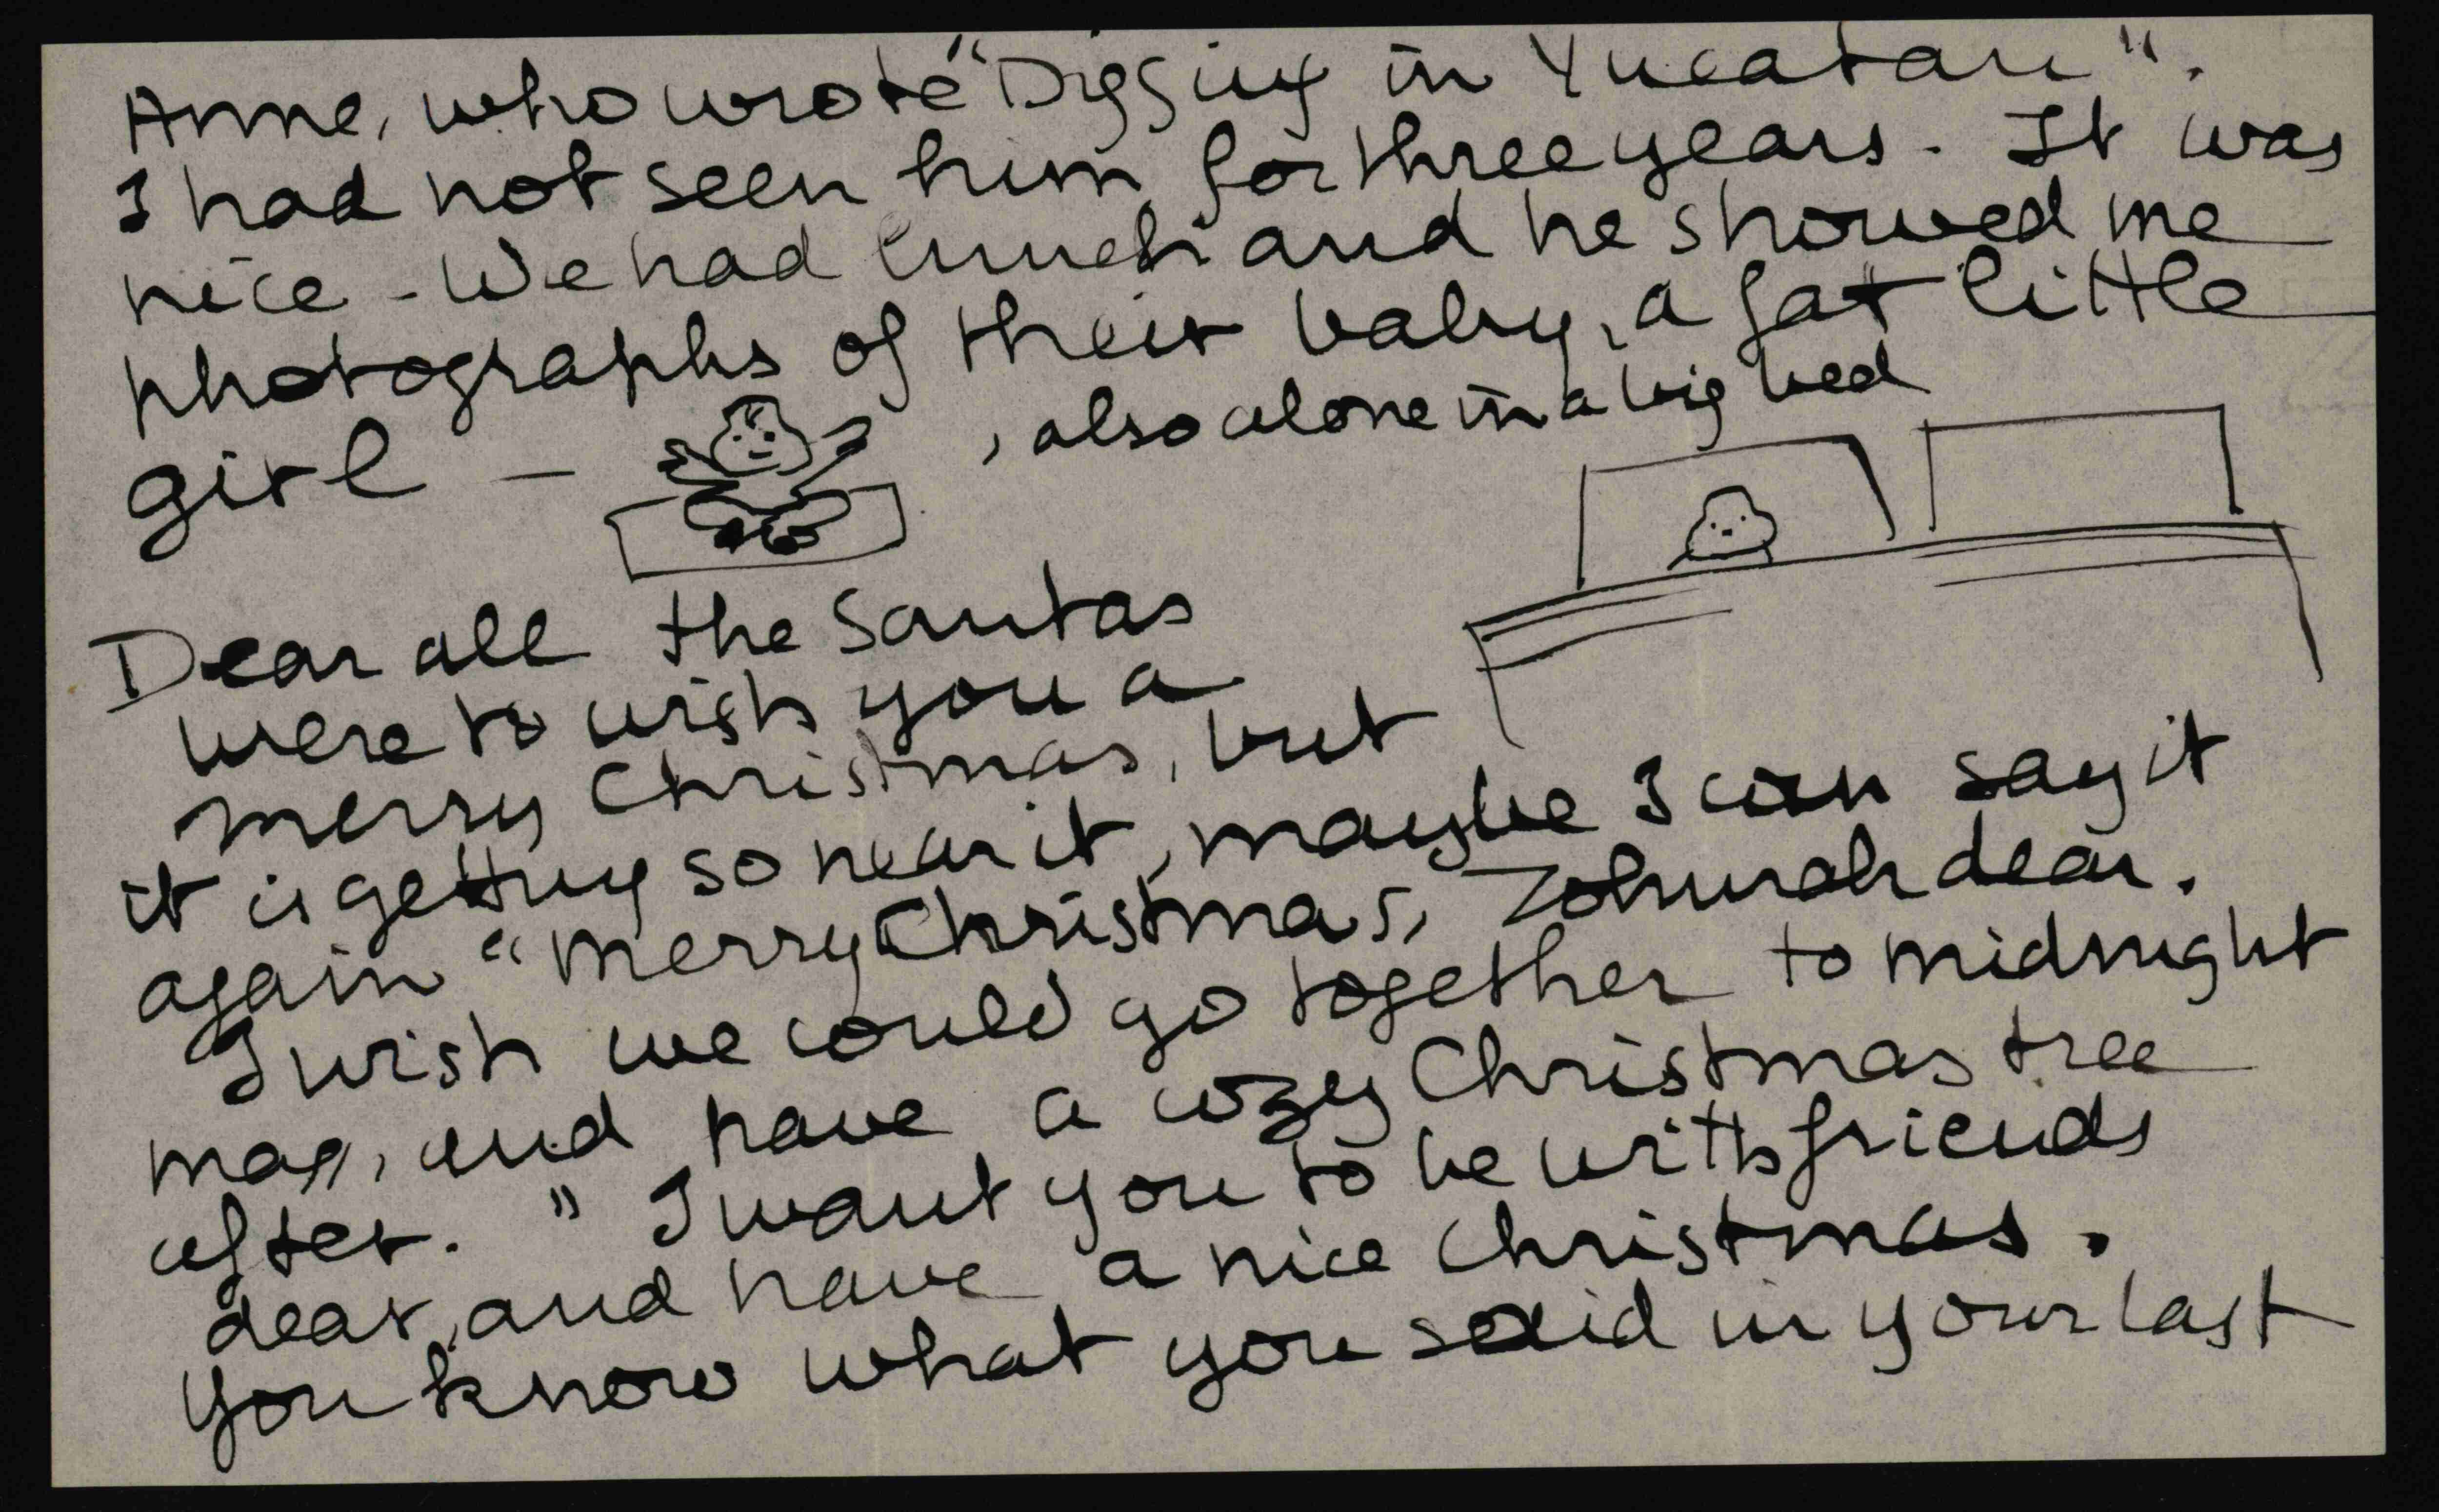 Anne, who wrote "Digging in Yucatan".
I had not seen him for three years. It was
nice - We had lunch and he showed me
photographs of their baby, a fat little
girl - , also alone in a big bed
Dear all the Santas
were to wish you a
merry Christmas, but
it is getting so near it, maybe I can say it
again "Merry Christmas, Zohmah dear.
I wish we could go together to midnight
mass, and have a cozy Christmas tree
after." I want you to be with friends
dear, and have a nice Christmas.
You know what you said in your last